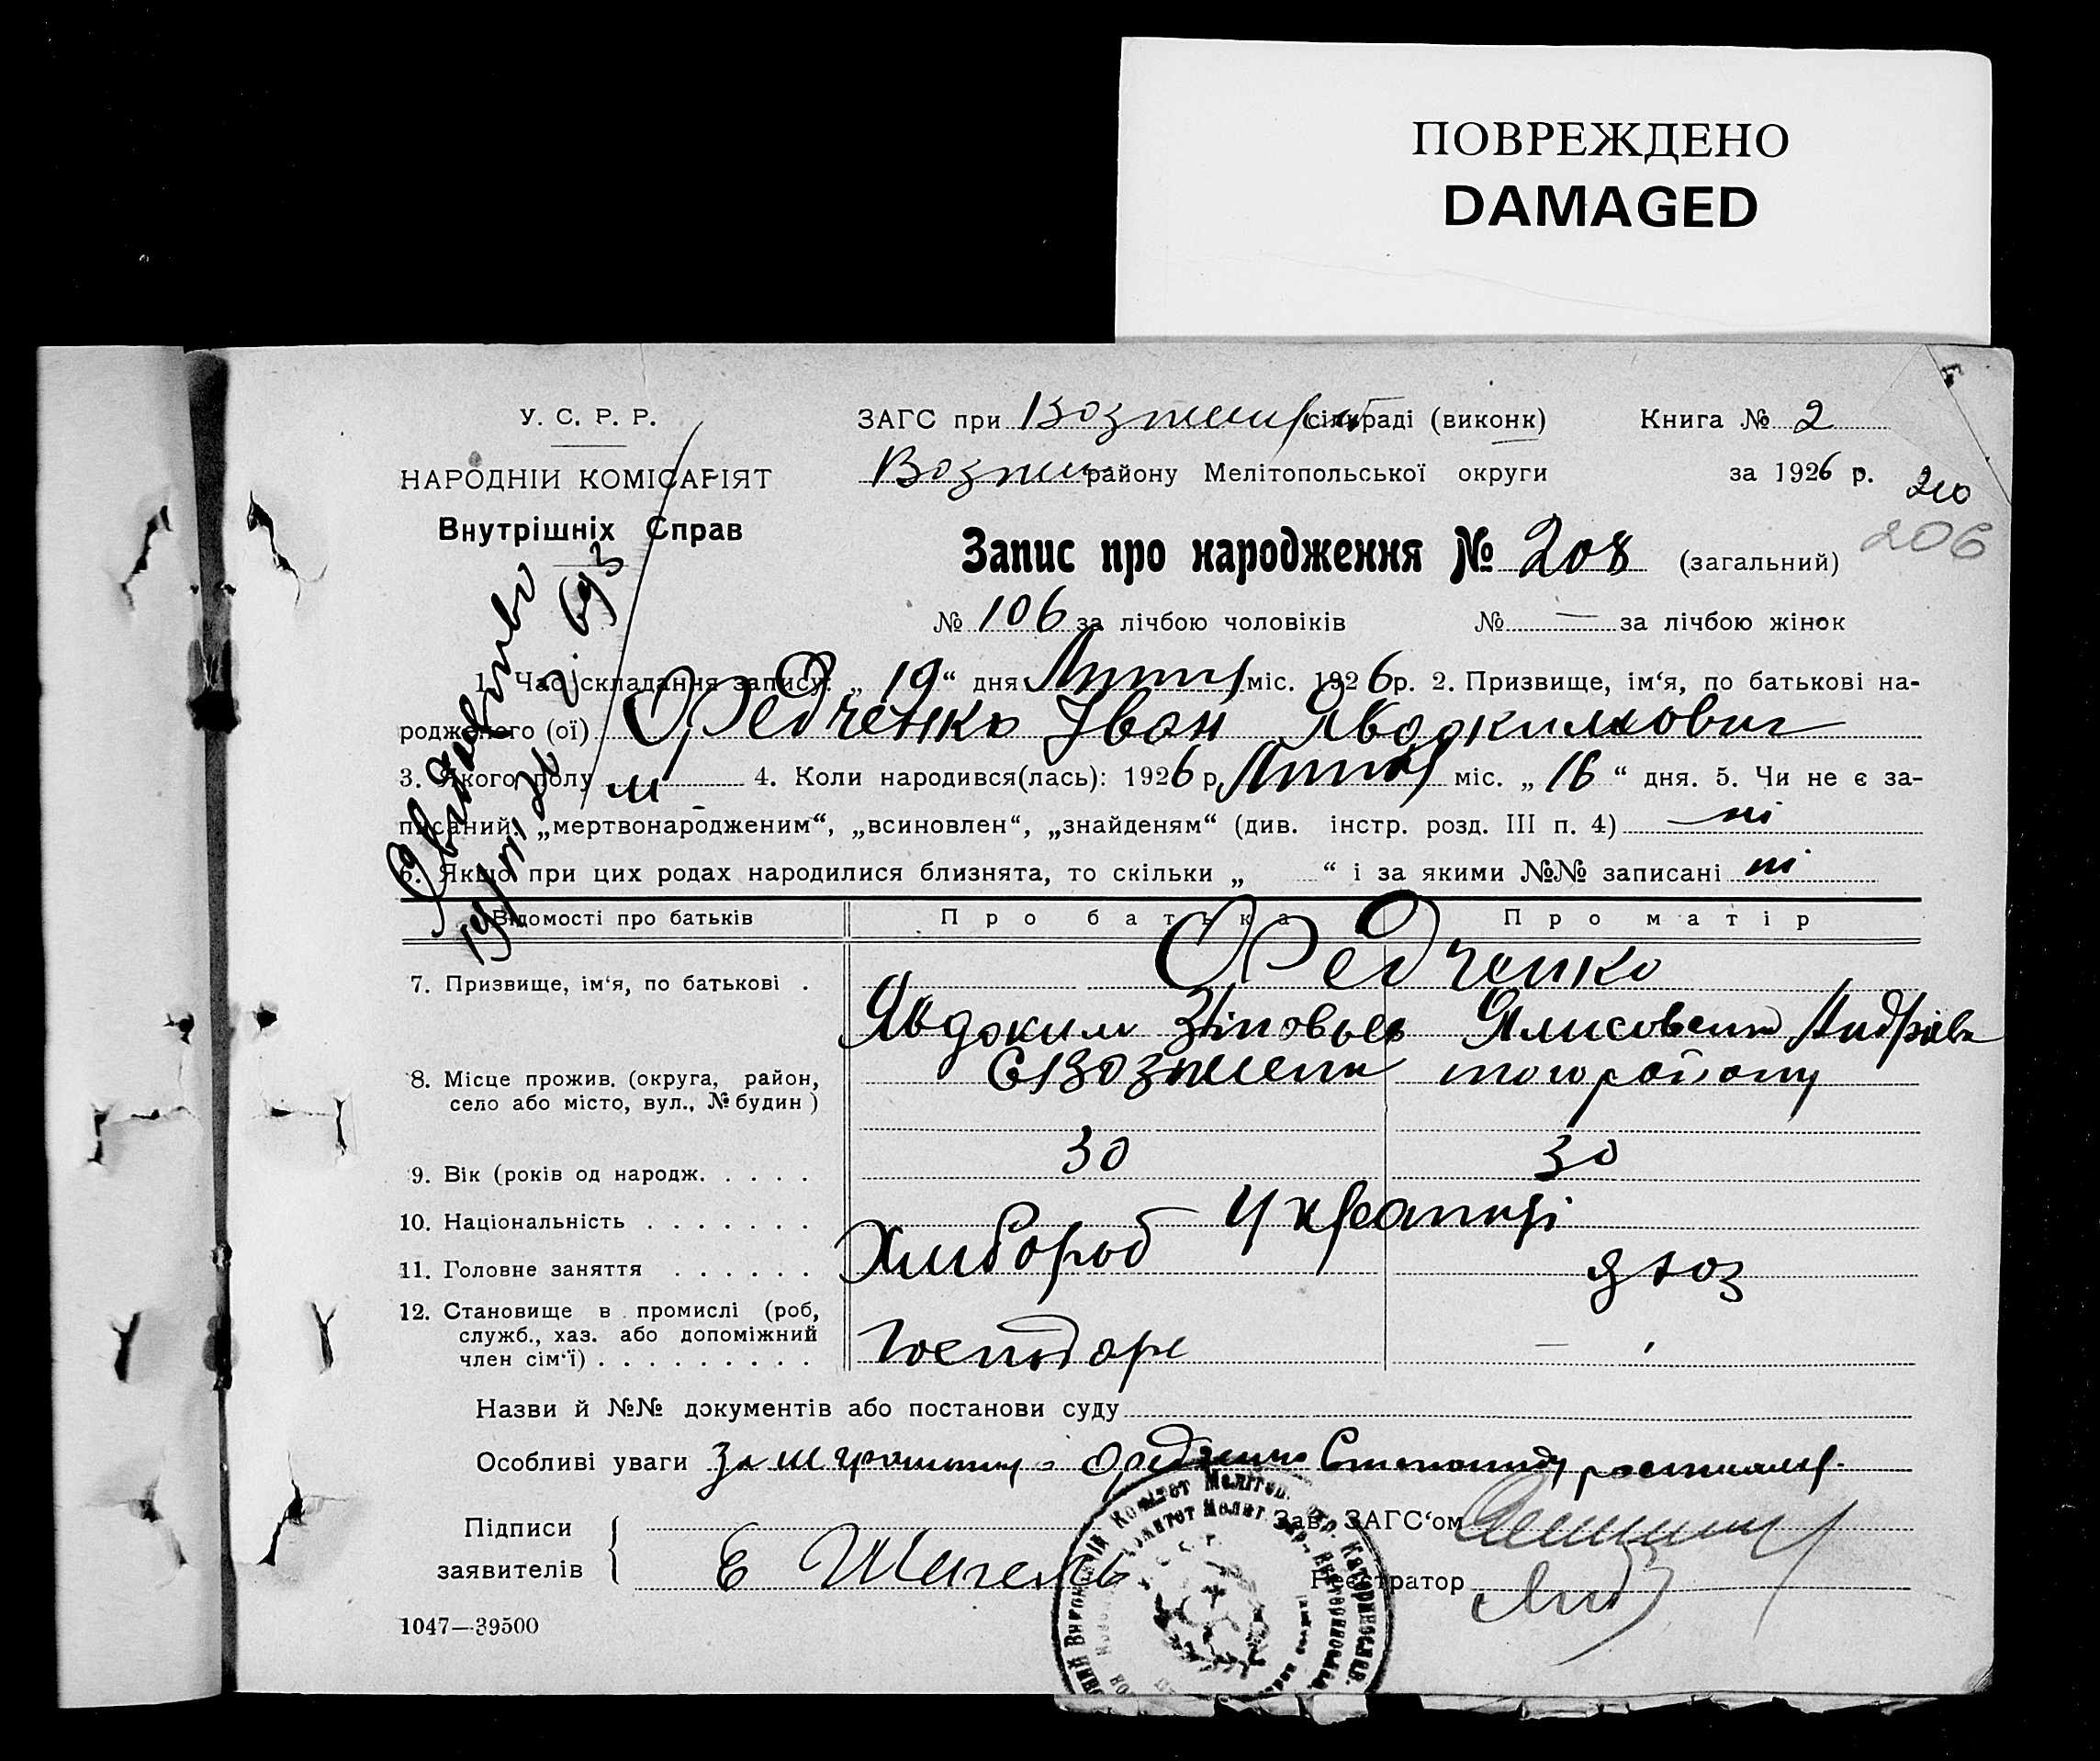 ПОВРЕЖДЕНО
DAMAGED
У. С. Р. Р.
НАРОДНІЙ КОМІСАРІЯТ
Внутрішніх Справ
ЗАГС при сільраді (виконк)
району Мелітопольської округи
Книга № 2
за 1926 р.
210
206
Запис про народження № 208 (загальний)
№ 106 за лічбою чоловіків № — за лічбою жінок
1. Час складання запису: „ 19 “ дня Липня міс. 1926 р. 2. Призвище, ім‘я, по батькові на-
родженого (ої) Федченко Іван Явдокимович
3. Якого полу м 4. Коли народився(лась): 1926 р. Липня міс. „ 16 “ дня. 5. Чи не є за-
писаний: „мертвонародженим“, „всиновлен“, „знайденям“ (див. інстр. розд. III п. 4) ні
6. Якщо при цих родах народилися близнята, то скільки „ “ і за якими №№ записані ні
Відомості про батьків Про батька Про матір
7. Призвище, ім‘я, по батькові . Федченко
Явдоким Зіновьев
8. Місце прожив. (округа, район, того району
село або місто, вул., № будин)
9. Вік (років од народж. . . . . 30 30
10. Національність . . . . . . . Українці
11. Головне заняття . . . . . . Хлібороб
12. Становище в промислі (роб,
служб., хаз. або допоміжний Господарь —
член сім‘ї) . . . . . . . . .
Назви й №№ документів або постанови суду
Особливі уваги
Підписи Зав. ЗАГС‘ом
заявителів Реєстратор
1047—39500